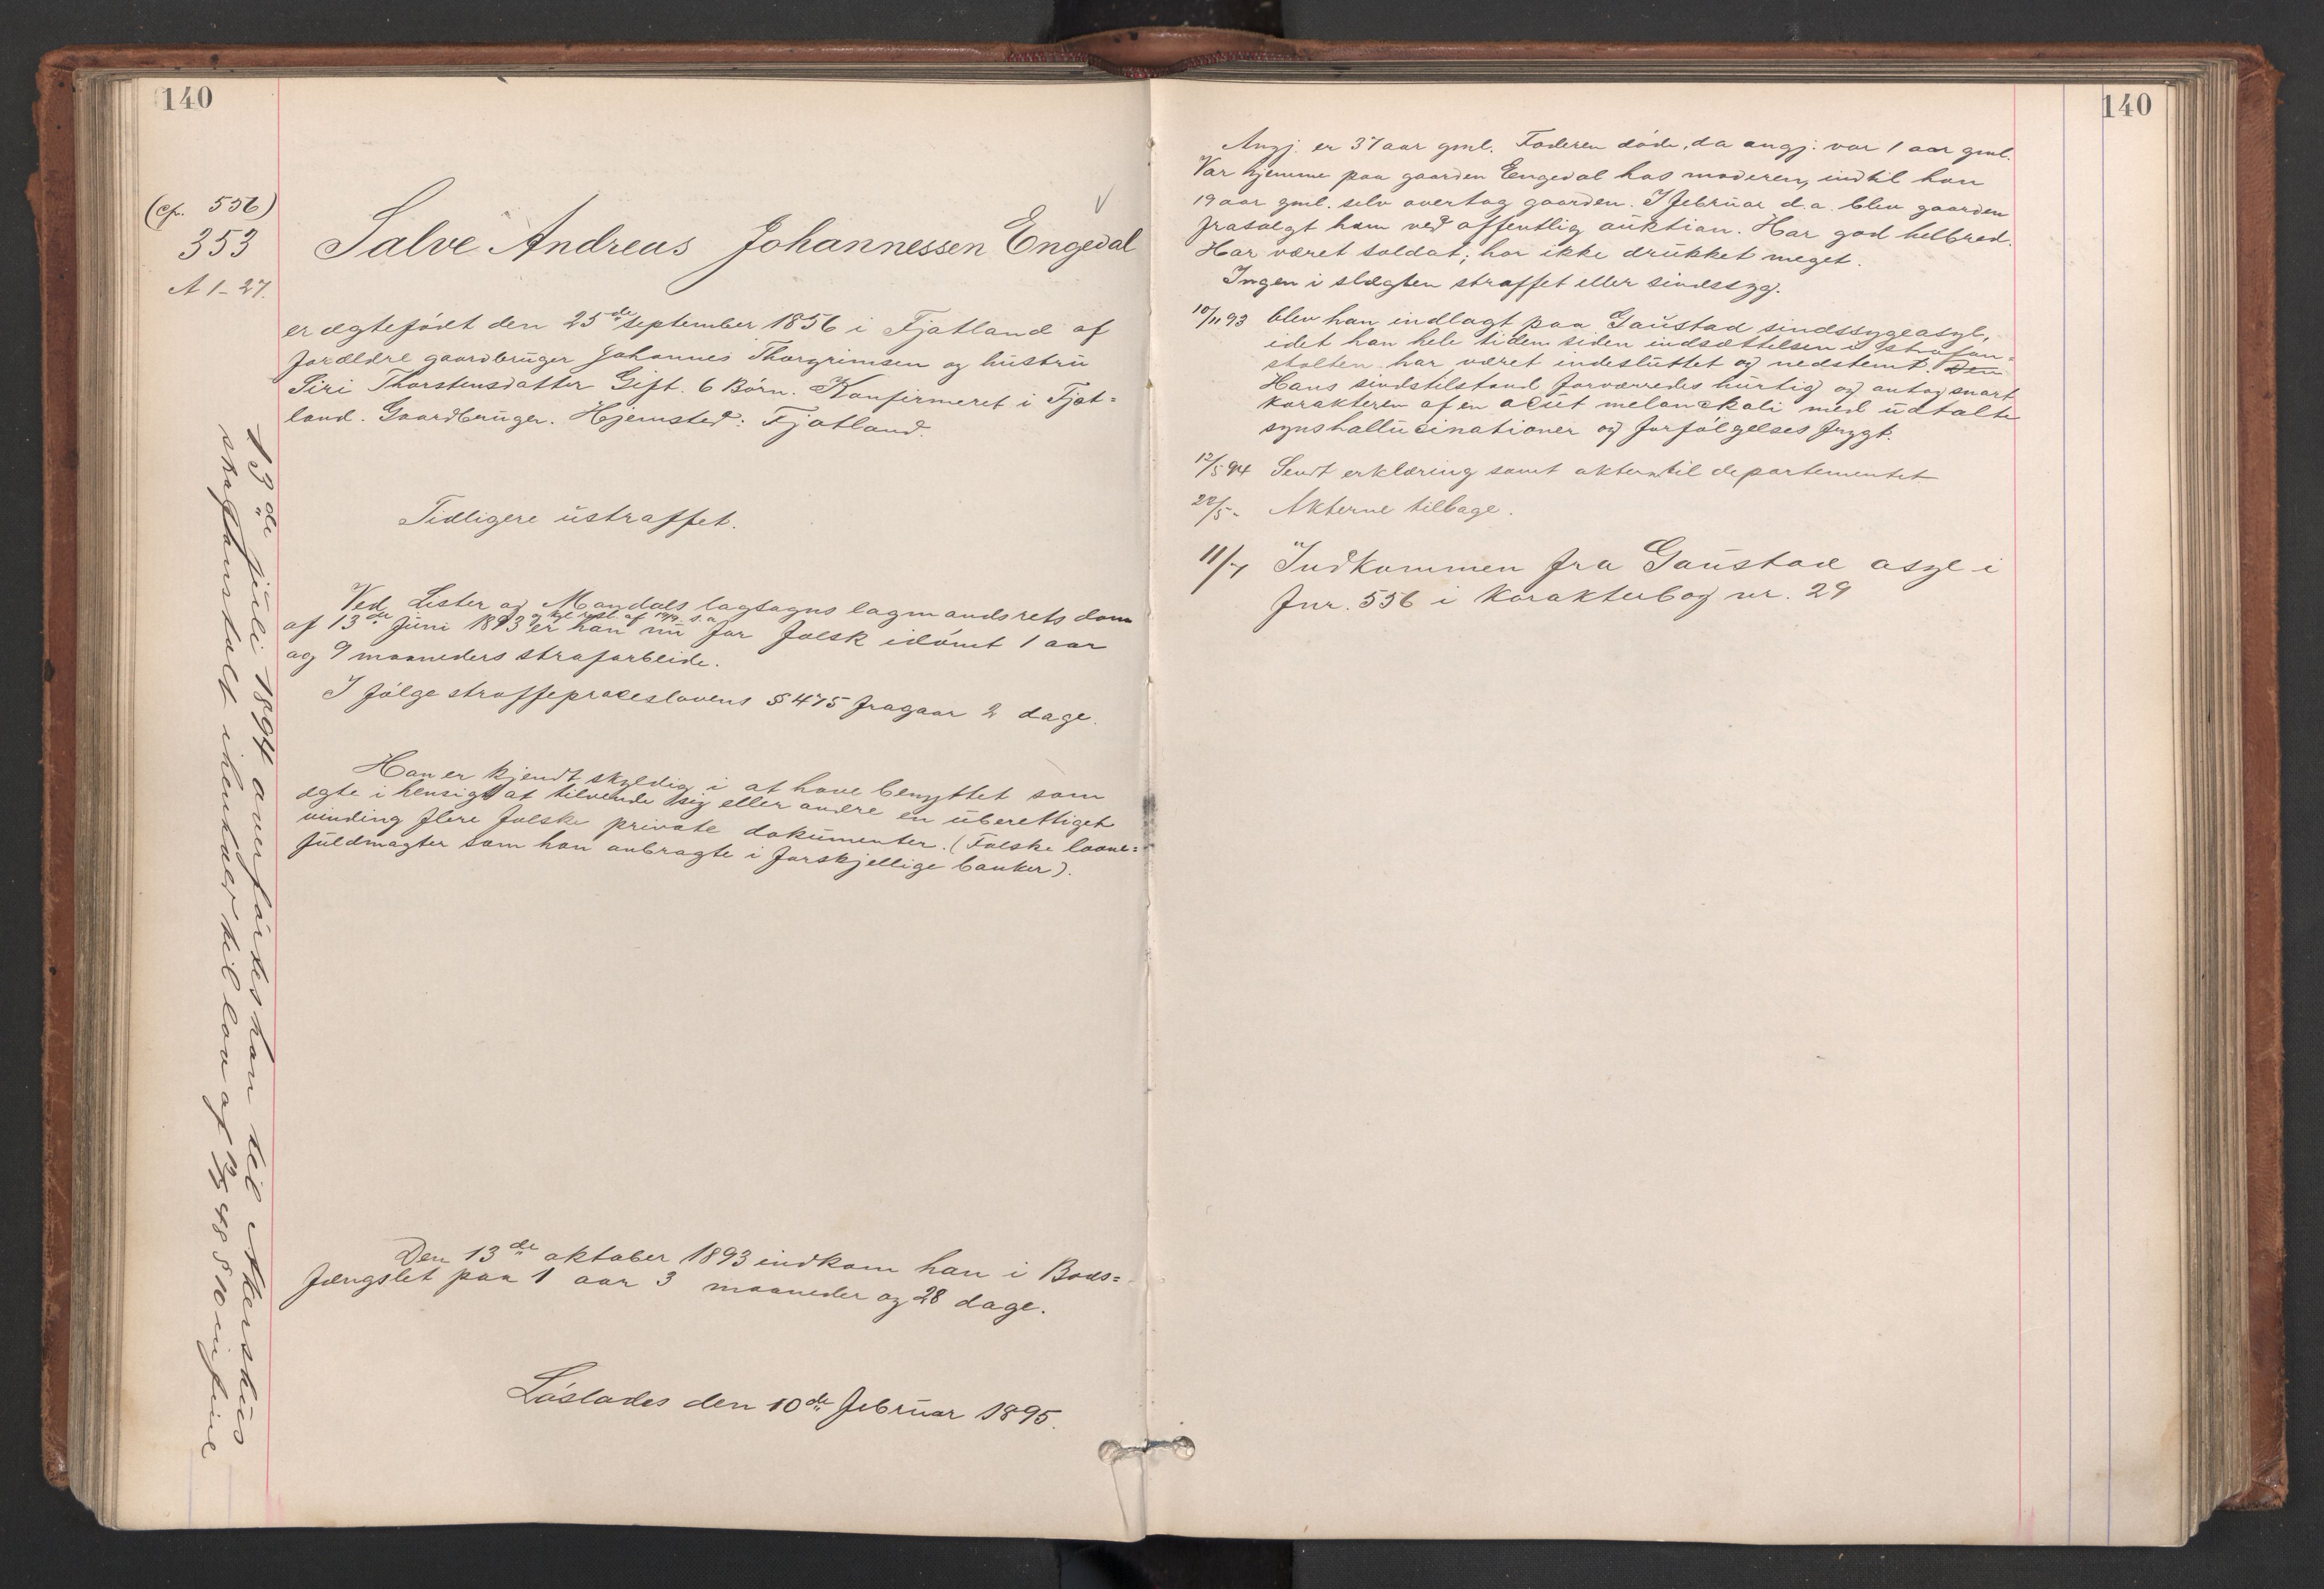 140
(cfr. 556)
353
A 1-27.
Salve Andreas Johannessen Engedal
er ægtefødt den 25de september 1856 i Fjatland af
forældre gaardbruger Johannes Thorgrimsen og hustru
Siri Thorstensdatter Gift. 6 Børn. Konfirmeret i Fjat=
land. Gaardbruger. Hjemsted: Fjatland.
Tidligere ustraffet.
Ved Lister og Mandals lagsogns lagmandsrets dom
af 13de Juni 1893 er han nu for falsk idømt 1 aar
og 9 maaneders strafarbeide.
I følge straffeproceslovens § 475 fragaar 2 dage.
Han er kjendt skyldig i at have benyttet som
ægte i hensigt at tilvende sig eller andre en uberettiget
vinding flere falske private dokumenter. (Falske laane=
fuldmagter som han anbragte i forskjellige banker).
Den 13de oktober 1893 indkom han i Bods=
fængslet paa 1 aar 3 maaneder og 28 dage.
Løslades den 10de februar 1895.
13de juli 1894 overførtes han til Akershus
strafanstalt i henhold til lov af 48 § 10 in fine
140
Angj. er 37 aar gml. Faderen døde, da angj. var 1 aar gml.
Var hjemme paa gaarden Engedal hos moderen, indtil han
19 aar gml. selv overtog gaarden. I februar d.a. blev gaarden
frasolgt ham ved offentlig auktion. Har god helbred.
Har været soldat; har ikke drukket meget.
Ingen i slægten straffet eller sindssyg.
10/11 93 blev han indlagt paa Gaustad sindssygeasyl,
idet han hele tiden siden indsættelsen i strafan=
stalten har været indesluttet og nedstemt. Den
Hans sindstilstand forværredes hurtig og antog snart
karakteren af en acut melankoli med udtalte
synshallucinationer og forfølgelses frygt.
12/5 94 Sendt erklæring samt akterne til departementet
22/5 - Akterne tilbage.
11/7 Indkommen fra Gaustad asyl i
fnr. 556 i karakterbog nr. 29